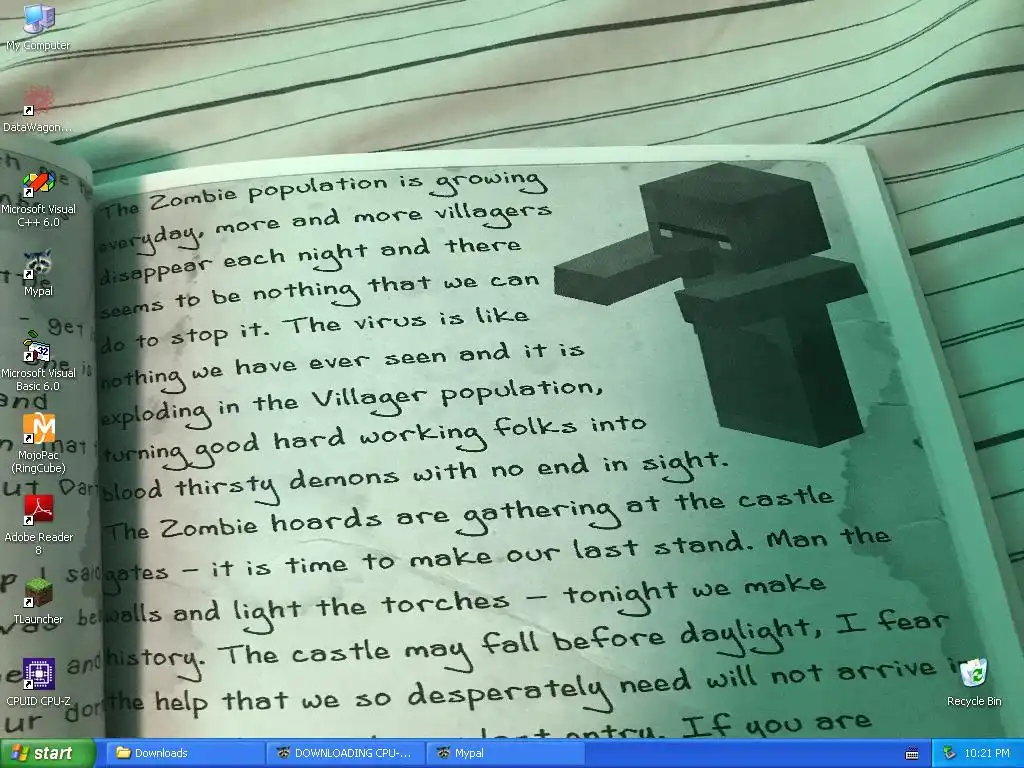 My Computer
DataWagon...
Microsoft Visual
C++ 6.0
Mypal
Microsoft Visual
Basic 6.0
MojoPac
(RingCube)
Adobe Reader
8
TLauncher
CPUID CPU-Z
The Zombie population is growing
everyday, more and more villagers
disappear each night and there
seems to be nothing that we can
do to stop it. The virus is like
nothing we have ever seen and it is
exploding in the Villager population,
turning good hard working folks into
blood thirsty demons with no end in sight.
The Zombie hoards are gathering at the castle
gates – it is time to make our last stand. Man the
walls and light the torches – tonight we make
history. The castle may fall before daylight, I fear
the help that we so desperately need will not arrive
entry. If you are
Recycle Bin
start
Downloads
DOWNLOADING CPU-...
Mypal
10:21 PM